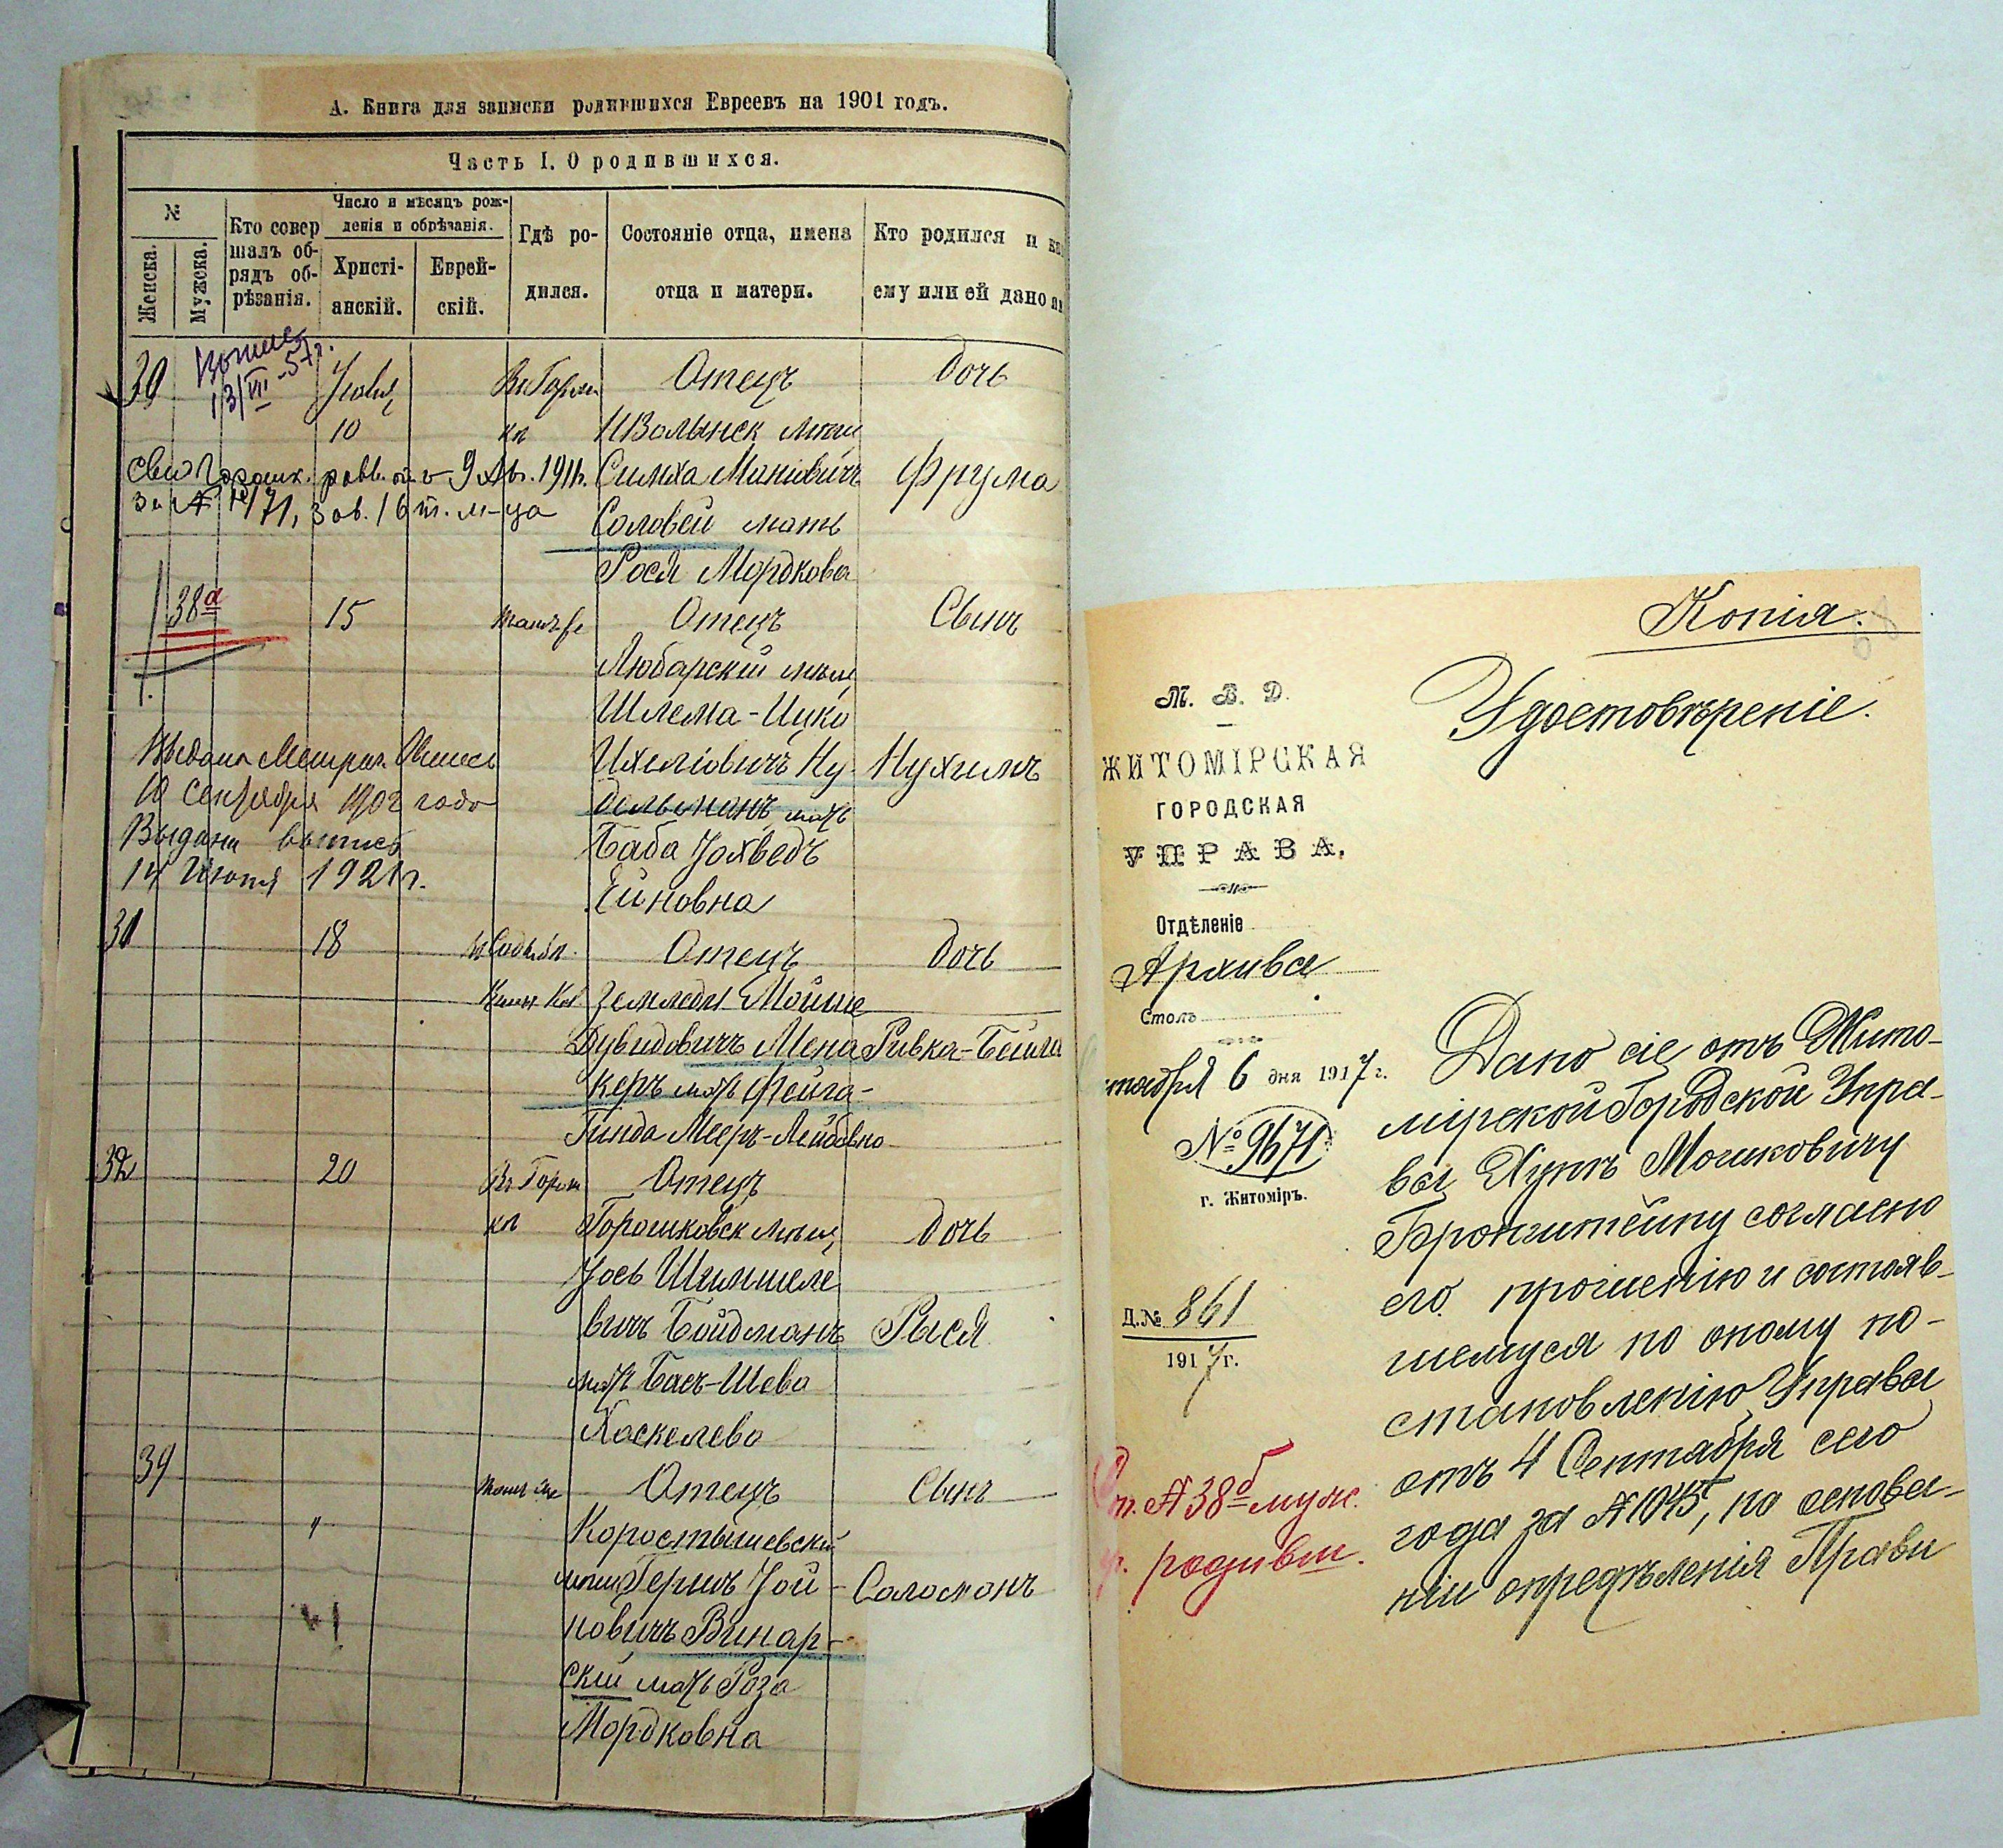 А. Книга для записки родившихся Евреевъ на 1901 годъ.
Часть I. О родившихся.
№
Женска.
Мужска.
Кто совер
шалъ об-
рядъ об-
рѣзанія.
Число и мѣсяцъ рож-
денія и обрѣзанія.
Христі-
анскій.
Еврей-
скій.
Гдѣ ро-
дился.
Состояніе отца, имена
отца и матери.
Кто родился и
ему или ей дано
30
13/VII-57г.
10
Отецъ
НВолынск мѣщ
Симха Маніовичъ
Соловей мать
Рося Мордкова
Дочь
Фрума
38а
15
Отецъ
Любарскій мѣщ
Шлема-Ицко
Ихеліовичъ Ну
дельманъ, мать
Баба Йохведъ
Ейновна
Сынъ
Нухимъ
10 Сентября 1902 года
Выдана выпись
14 1921г.
31
18
Отецъ
Мойше
Дувидовичъ Мена
керъ мать Фейга-
Гинда Мееръ-Лейбовно
Дочь
Ривка-Бейла
32
20
Отецъ
Горошковск мѣщ
Йось Шимшеле
вичъ Бойдманъ
мать Бась-Шева
Хаскелева
Дочь
Рыся
39
"
Отецъ
Коростышевскій
мѣщ Гершъ Йой-
новичъ Винар-
скій мать Роза
Мордковна
Сынъ
Соломонъ
Копія.
М. В. Д.
ЖИТОМІРСКАЯ
ГОРОДСКАЯ
УПРАВА.
Отдѣленіе
Архива
Столъ
6 дня 1917 г.
№ 9671
г. Житоміръ.
Д.№ 861
1917 г.
№ 38б муж.
родивш.
Удостовѣреніе.
Дано сіе отъ Жито-
мірской Городской Упра-
вы Мошковичу
Бронштейну согласно
его прошенію и состояв-
шемуся по оному по-
становленію Управы
отъ 4 Сентября сего
года за № 1045, на основа-
ніи опредѣленія Прави